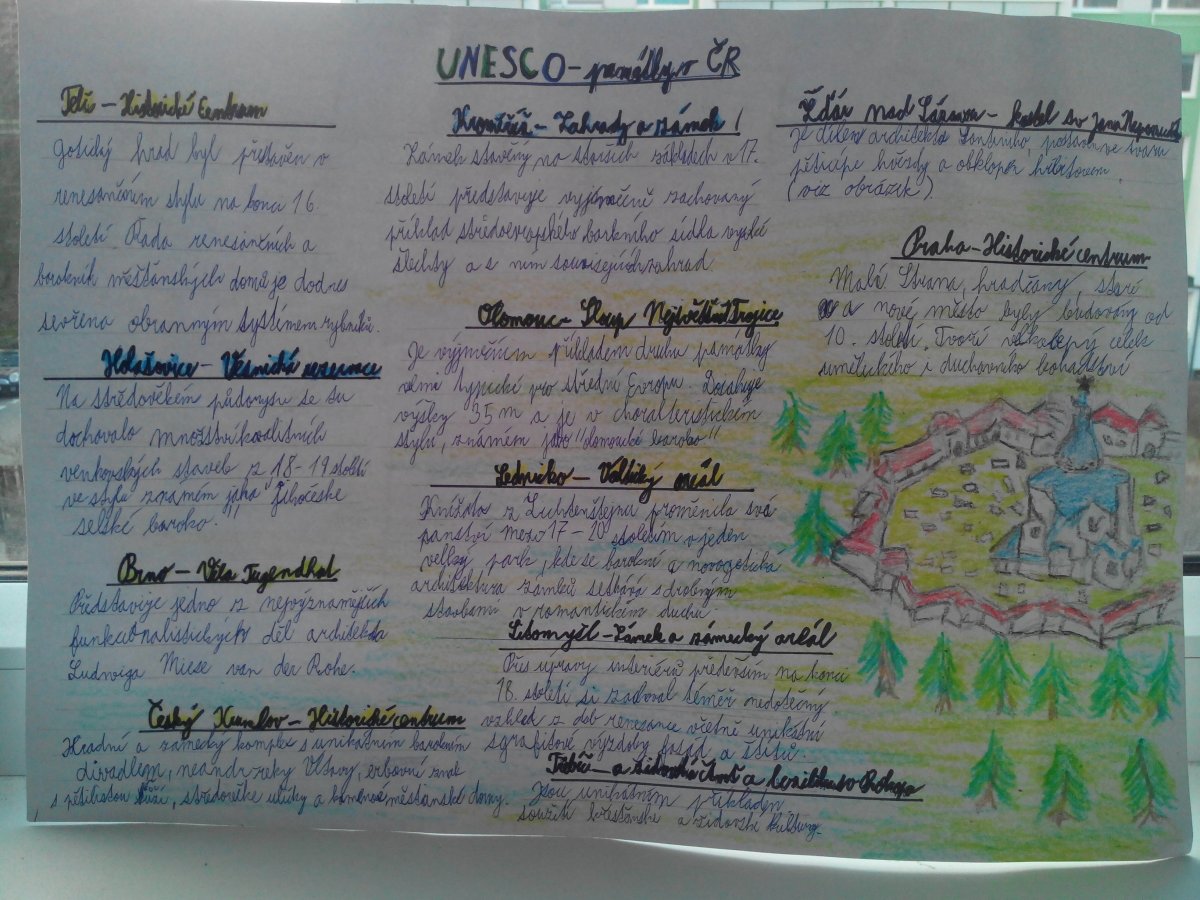 UNESCO - památky v ČR
Telč - Historické Centrum
gotický hrad byl přestavěn v
renesančním stylu na konci 16
století. Řada renesančních a
barokních měšťanských domů je dodnes
sevřena obranným systémem rybníků.
Holašovice - Vesnická rezervace
Na středověkém půdorysu se tu
dochovalo množství kvalitních
venkovských staveb z 18-19 století
ve stylu známém jako "Jihočeské
selské baroko."
Brno - Vila Tugendhat
Představuje jedno z nejvýznamějších
funkcionalistických děl architekta
Ludwiga Miese van der Rohe.
Český Krumlov - Historické centrum
Hradní a zámecký komplex s unikátním barokním
divadlem, meandry řeky Vltavy, erbovní znak
s pětilistou růží, středověké uličky a kamenné měšťanské domy.
Kroměříž - Zahrady a zámek
Zámek stavěný na starších základech v 17.
století představuje vyjímečně zachovaný
příklad středoevropského barkního sídla vysoké
šlechty a s ním souvisejících zahrad
Olomouc - Sloup Nejsvětější Trojice
Je výjmečným příkladem druhu památky
velmi typické pro střední Evropu. Dosahuje
výšky 35 m a je v charakteristickém
stylu, známém jako "olomoucké baroko"
Lednicko - Valtický areál
Knížata z Lichtenštejna proměnila svá
panství mezi 17 - 20 stoletím v jeden
velký park, kde se barokní a novogotická
architektura zámků setkává s drobnými
stavbami v romantickém duchu.
Litomyšl - Zámek a zámecký areál
Přes úpravy interiérů především na konci
18. století si zachoval téměř nedotčený
vzhled z dob renesance včetně unikátní
sgrafitové výzdoby fasád a štítů.
Třebíč - a židovská čtvrť a bazilika sv Prokopa
Jsou unikátním příkladem
soužití křesťanské a židovské kultury.
Žďár nad Sázavou - kostel sv Jana Nepomuckého
Je dílem architekta Santiniho, postaven ve tvaru
pěticípé hvězdy a obklopen hřbitovem.
(viz obrázek).
Praha - Historické centrum
Malá Strana, hradčany, staré
a nové město byly budovány od
10. století. Tvoří velkolepý celek
uměleckého i duchovního bohatství